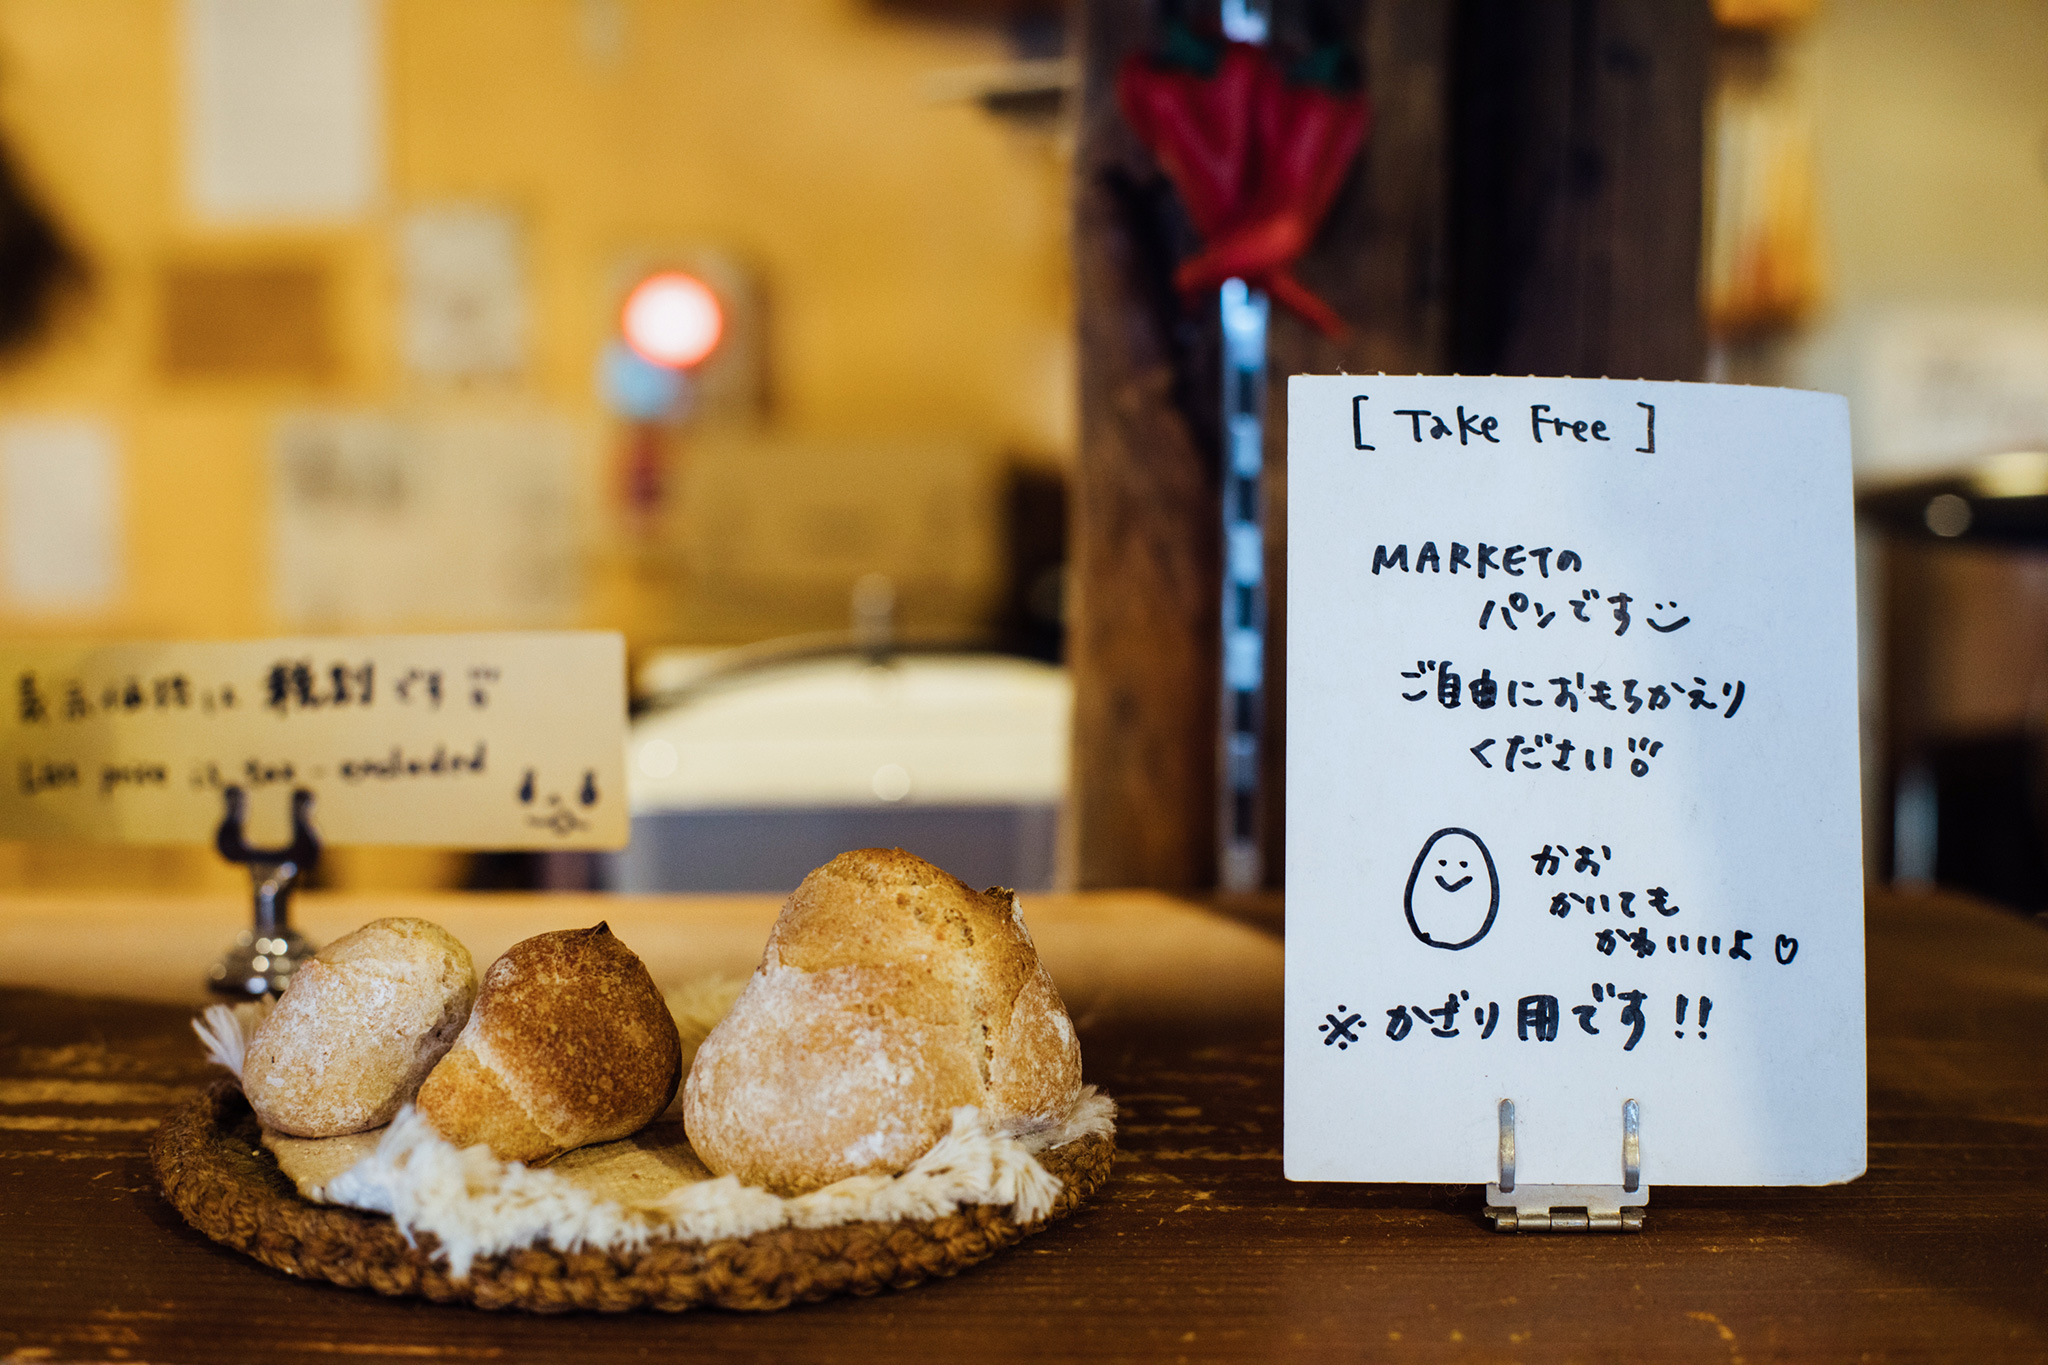 [ Take Free ]
MARKETの
パンです
ご自由におもちかえり
ください
かお
かいても
かわいいよ♡
※かざり用です!!
税別です